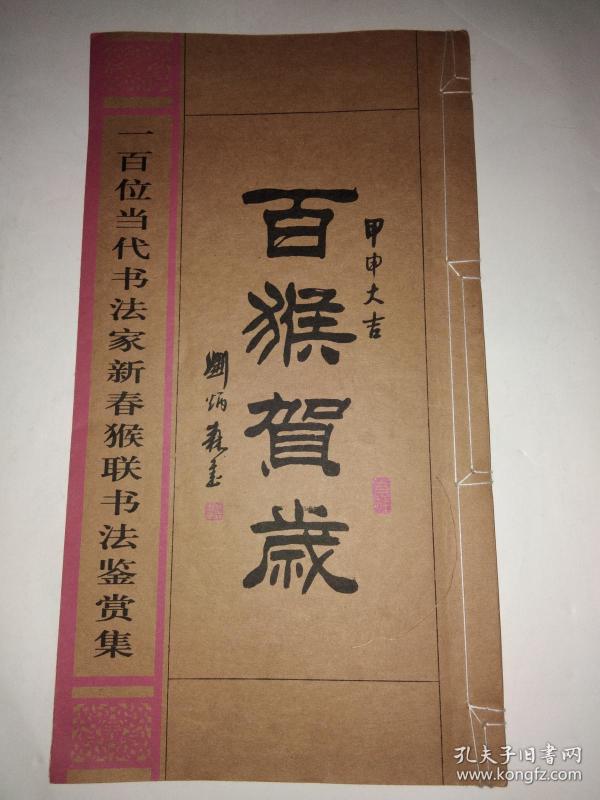 甲申大吉
百猴贺岁
劉炳森書
一百位当代书法家新春猴联书法鉴赏集
孔夫子旧书网
www.kongfz.com